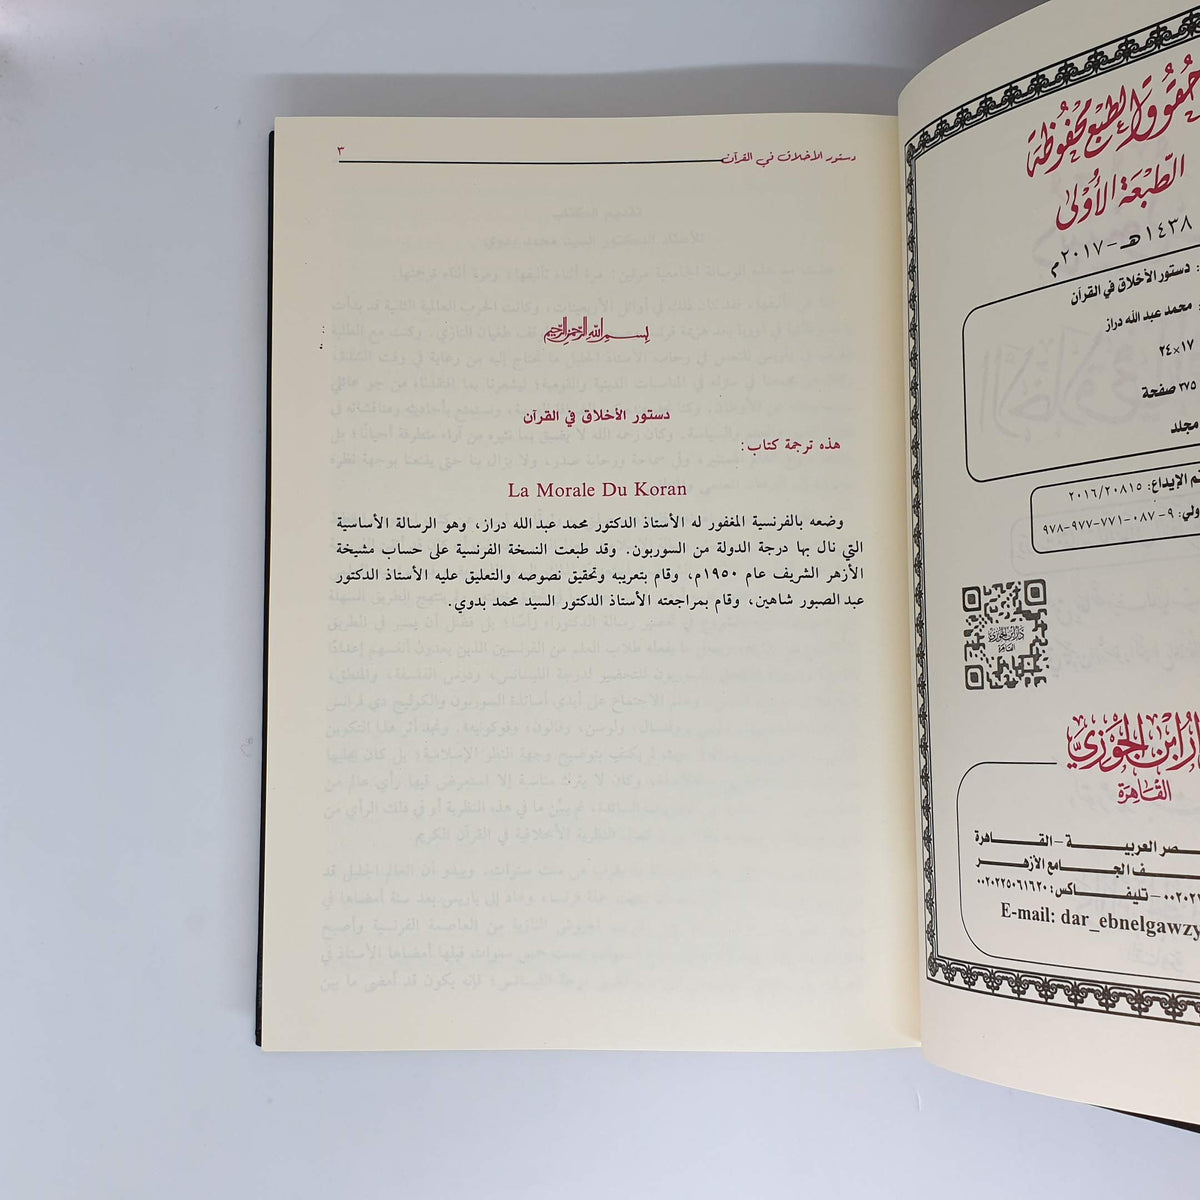 حقوق الطبع محفوظة
الطبعة الأولى
١٤٣٨هـ-٢٠١٧م
: دستور الأخلاق في القرآن
: محمد عبد الله دراز
١٧×٢٤
٣٧٥ صفحة
مجلد
الإيداع: ٢٠١٦/٢٠٨١٥
٩-٠٨٧-٧٧١-٩٧٧-٩٧٨
دار ابن الجوزي
القاهرة
ابن الجوزي
القاهرة
العربية – القاهرة
الجامع الأزهر
تليفاكس: ٠٠٢٠٢٢٥٠٦١٦٢٠
E-mail: dar_ebnelgawzy
دستور الأخلاق في القرآن ٣
بسم الله الرحمن الرحيم
دستور الأخلاق في القرآن
هذه ترجمة كتاب:
La Morale Du Koran
وضعه بالفرنسية المغفور له الأستاذ الدكتور محمد عبد الله دراز، وهو الرسالة الأساسية
التي نال بها درجة الدولة من السوربون. وقد طبعت النسخة الفرنسية على حساب مشيخة
الأزهر الشريف عام ١٩٥٠م، وقام بتعريبه وتحقيق نصوصه والتعليق عليه الأستاذ الدكتور
عبد الصبور شاهين، وقام بمراجعته الأستاذ الدكتور السيد محمد بدوي.